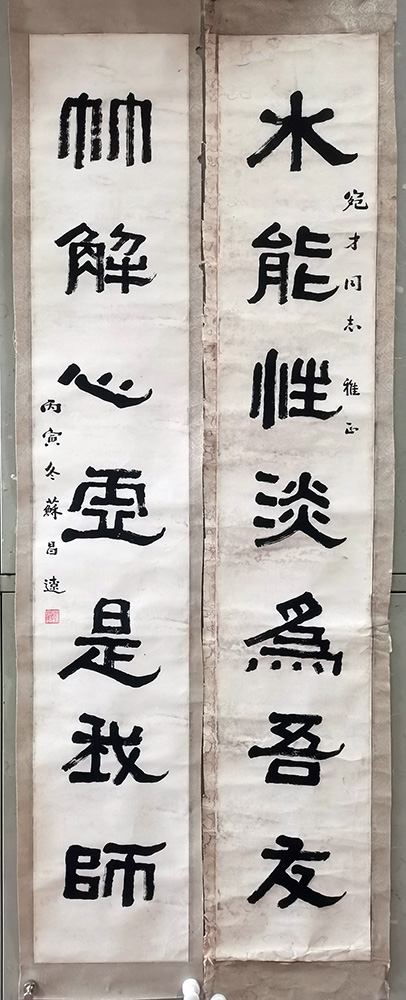 水能性淡為吾友
宛才同志 雅正
竹解心虛是我師
丙寅冬蘇昌遼